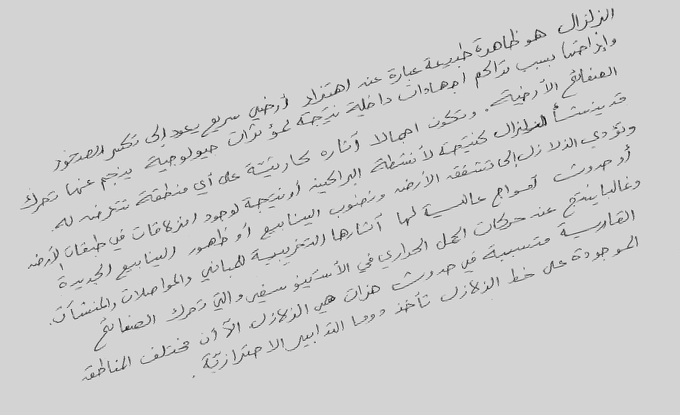 الزلزال هو ظاهرة طبيعة عبارة عن اهتزاز أرضي سريع يعود إلى تكسر الصخور
وإزاحتها بسبب تراكم اجهادات داخلية نتيجة لمؤثرات جيولوجية ينجم عنها تحرك
الصفائح الأرضية. وتكون اجمالا آثاره كارثيّة على أي منطقة تتعرض له.
قد ينشأ الزلزال كنتيجة لأنشطة البراكين أو نتيجة لوجود انزلاقات في طبقات الأرض
وتؤدي الزلازل إلى تشقق الأرض ونضوب الينابيع أو ظهور الينابيع الجديدة
أو حدوث أمواج عالية لها آثارها التخريبية للمباني والمواصلات والمنشآت.
وغالبا ينتج عن حركات الحمل الحراري في الأستينوسفير والتي تحرك الصفائح
القارية متسببة في حدوث هزات هي الزلازل. الآ أن مختلف المناطق
الموجودة على خط الزلازل تأخذ دوما التدابير الاحترازيّة.